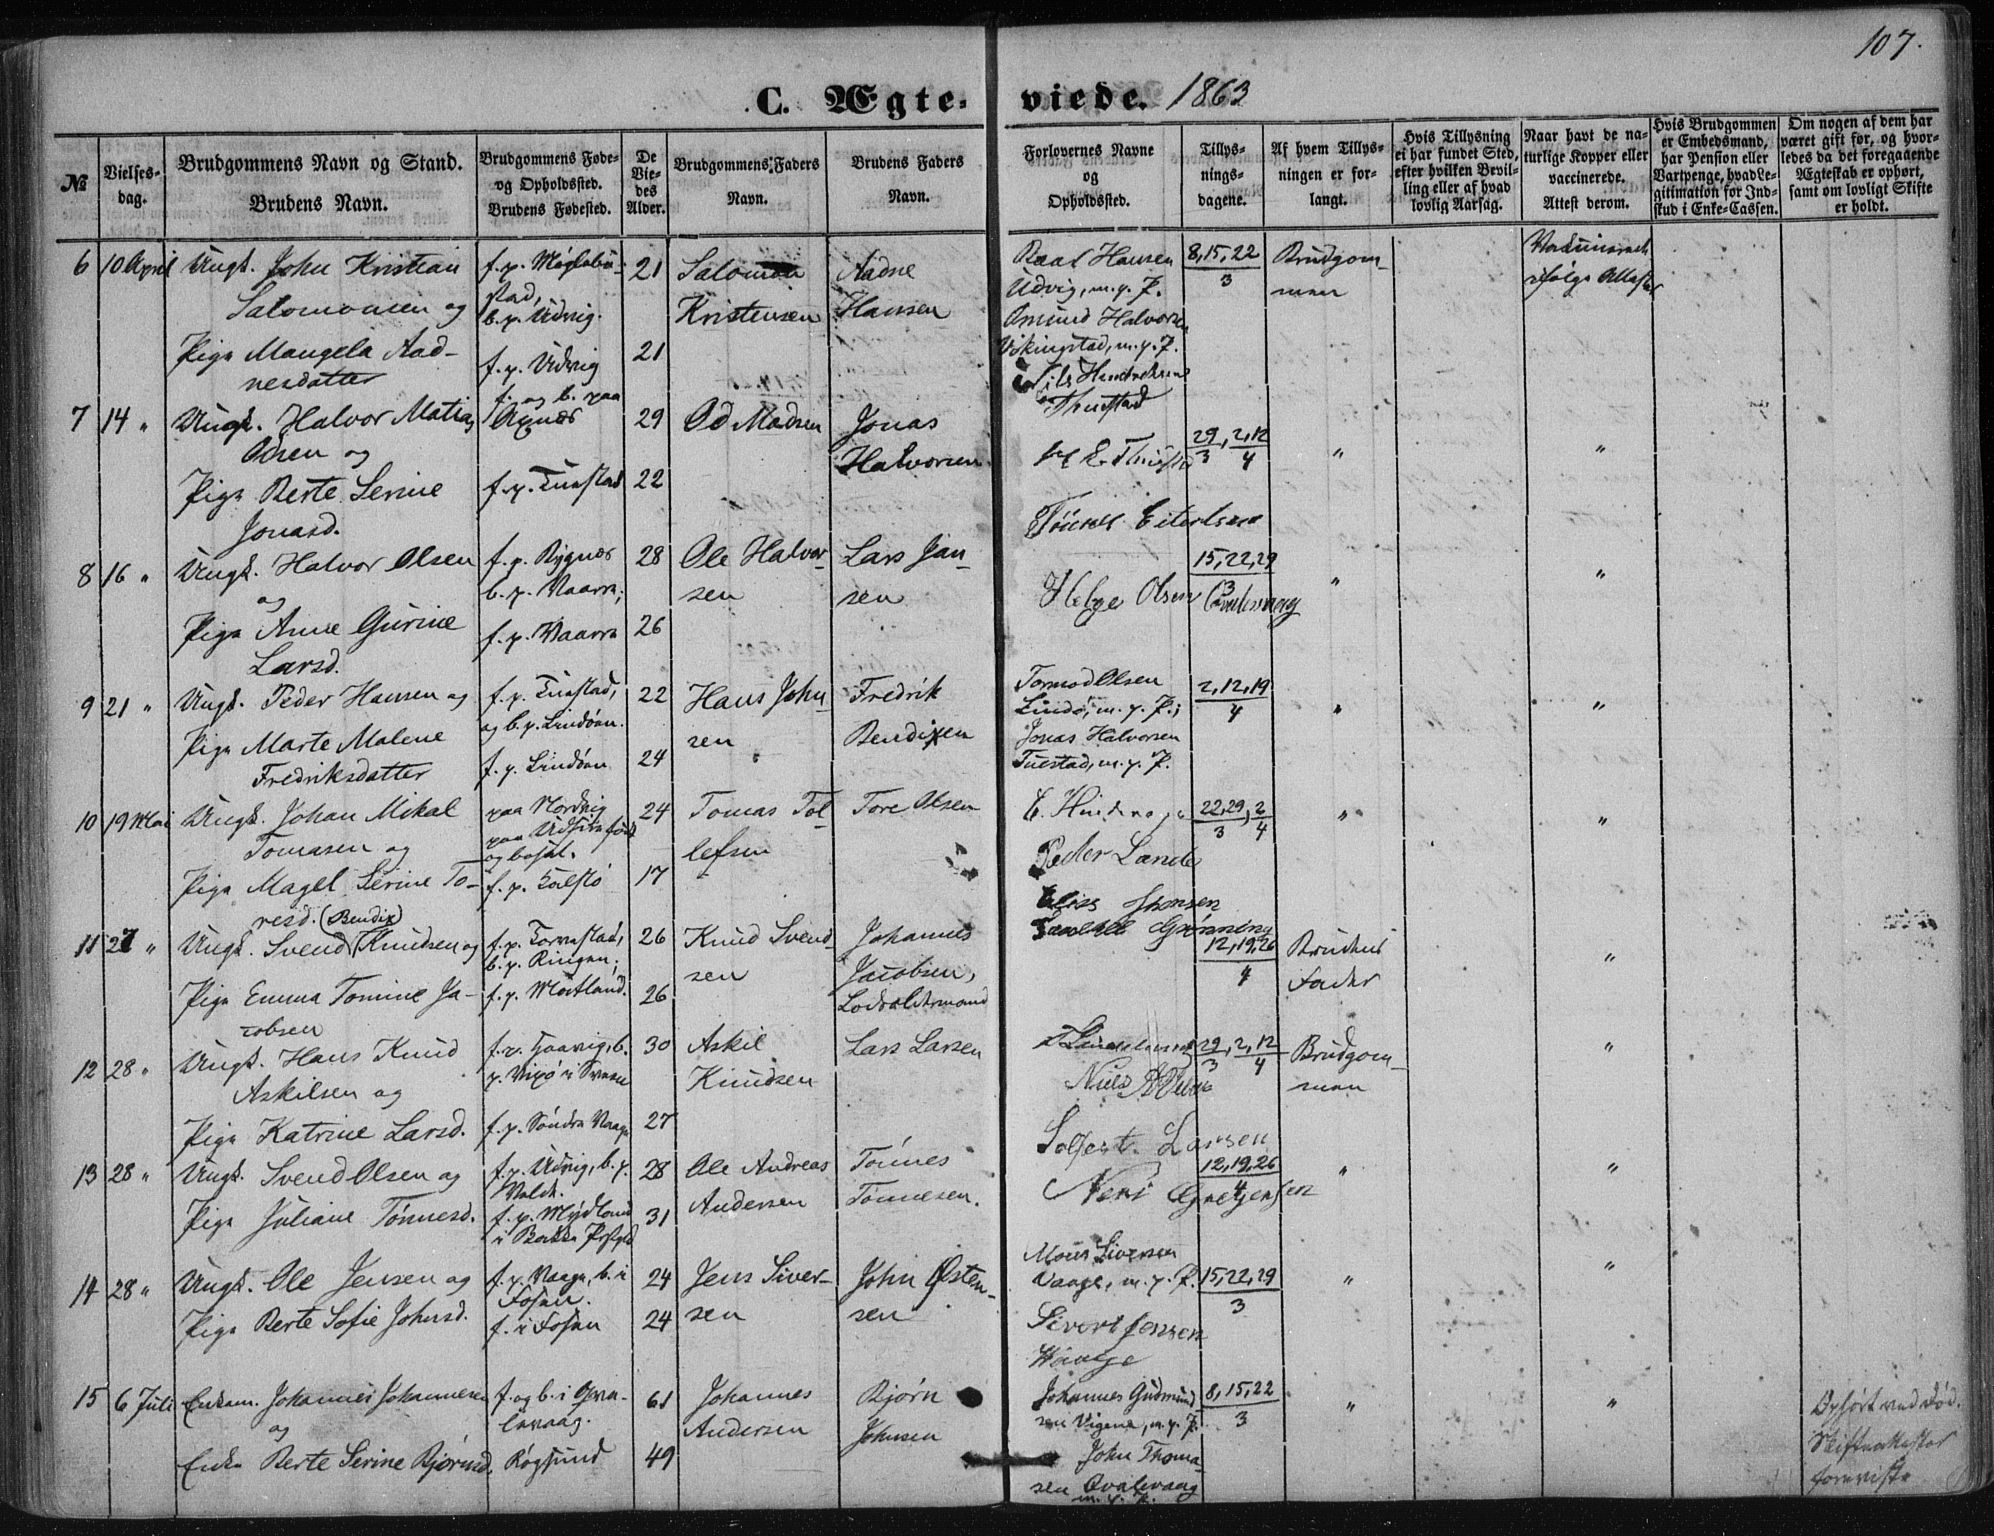 107.
C. Ægte- viede. 1863
№
Vielses-
dag.
Brudgommens Navn og Stand.
Brudens Navn.
Brudgommens Føde-
og Opholdssted.
Brudens Fødested.
De
Vie-
des
Alder.
Brudgommens Faders
Navn.
Brudens Faders
Navn.
Forlovernes Navne
og
Opholdssted.
Tillys-
nings-
dagene.
Af hvem Tillys-
ningen er for-
langt.
Hvis Tillysning
ei har fundet Sted,
efter hvilken Bevil-
ling eller af hvad
lovlig Aarsag.
Naar havt de na-
turlige Kopper eller
vaccinerede.
Attest derom.
Hvis Brudgommen
er Embedsmand,
har Pension eller
Vartpenge, hvad Le-
gitimation for Ind-
skud i Enke-Cassen.
Om nogen af dem har
været gift før, og hvor-
ledes da det foregaaende
Ægteskab er ophørt,
samt om lovligt Skifte
er holdt.
6 10 April Ungk. John Kristian
Salomonsen og
Pige Mangela Aad-
nesdatter
f. p. Møglebu-
stad,
b. p. Udvig.
f. p. Udvig
21
21
Salomon
Kristensen
Aadne
Hansen
Hansen
Udvig, m. p. P.
Omund Halvorsen
Vikingstad, m. p. P.
8, 15, 22
3
Brudgom-
men
ifølge Attester
7 14 " Ungk. Halvor Matias
Odsen og
Pige Berte Serine
Jonasd.
f. og b. paa
f. p. Tuastad
29
22
Od Madsen
Jonas
Halvorsen
29/3, 2, 12/4
"
"
8 16 " Ungk. Halvor Olsen
og
Pige Anne Gurine
Larsd.
f. p. Rygnes
b. p. Vaarre;
f. p. Vaarre
28
26
Ole Halvor-
sen
Lars Jan-
sen
Helge Olsen
15, 22, 29
3
"
"
9 21 " Ungk. Peder Hansen og
Pige Marte Malene
Fredriksdatter
f. p. Tuastad,
og b. p. Lindøen.
f. p. Lindøen
22
24
Hans John-
sen
Fredrik
Bendixen
Tormod Olsen
Lindø, m. p. P.;
Jonas Halvorsen
Tuestad, m. p. P.
2, 12, 19
4
"
"
10 19 Mai Ungk. Johan Mikal
Tomasen og
Pige Magel Serine To-
resd.
paa Nordvig
paa Udsire født
og bosat.
f. p. Kalstø
24
17
Tomas Tol-
lefsen
Tore Olsen
Peder Lande
22, 29/3, 2/4
"
"
11 27 " Ungk. Svend (Bendix) Knudsen og
Pige Emma Tomine Ja-
cobsen
f. p. Torvestad,
b. p. Ringen;
f. p. Mortland.
26
26
Knud Svend-
sen
Johannes
Jacobsen,
Lodsoldermand
12, 19, 26
4
Brudens
Fader
"
12 28 " Ungk. Hans Knud
Askilsen og
Pige Katrine Larsd.
f. p. Søndre Vaage
30
27
Askil
Knudsen
Lars Larsen
29/3, 2, 12/4
Brudgom-
men
"
13 28 " Ungk. Svend Olsen og
Pige Juliane Tønnesd.
f. p. Udvig, b. p.
f. p. Mydland
i Bakke Præstgjd
28
31
Ole Andreas
Andersen
Tønnes
Tønnesen.
Larsen
12, 19, 26
4
"
"
14 28 " Ungk. Ole Jensen og
Pige Berte Sofie Johnsd.
f. p. Vaage, b. i
Fosen.
f. i Fosen
24
24
Jens Siver-
sen
John Østen-
sen
Mons Siversen
Vaage, m. p. P.
Sivert Jensen
Waage
15, 22, 29
3
"
"
15 6 Juli Enkem. Johannes Johannesen
og
Enke Berte Serine Bjørnsd.
f. og b. i Qva-
levaag.
Røgsund
61
49
Johannes
Andersen
Bjørn
Johnsen
Johannes Gudmund-
sen Vigene, m. p. P.
John Thoma-
sen Qvalevaag
m. p. P.
8, 15, 22
3
"
"
Ophørt ved Død.
Skifteattester
foreviste